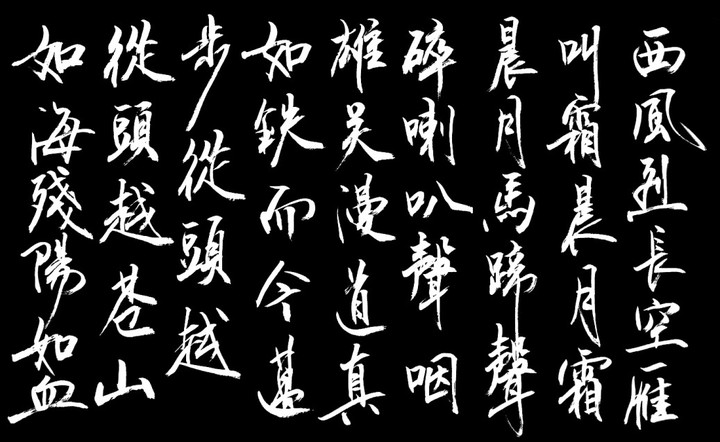 西風烈長空雁
叫霜晨月霜
晨月馬蹄聲
碎喇叭聲咽
雄关漫道真
如鉄而今邁
步從頭越
從頭越苍山
如海殘陽如血